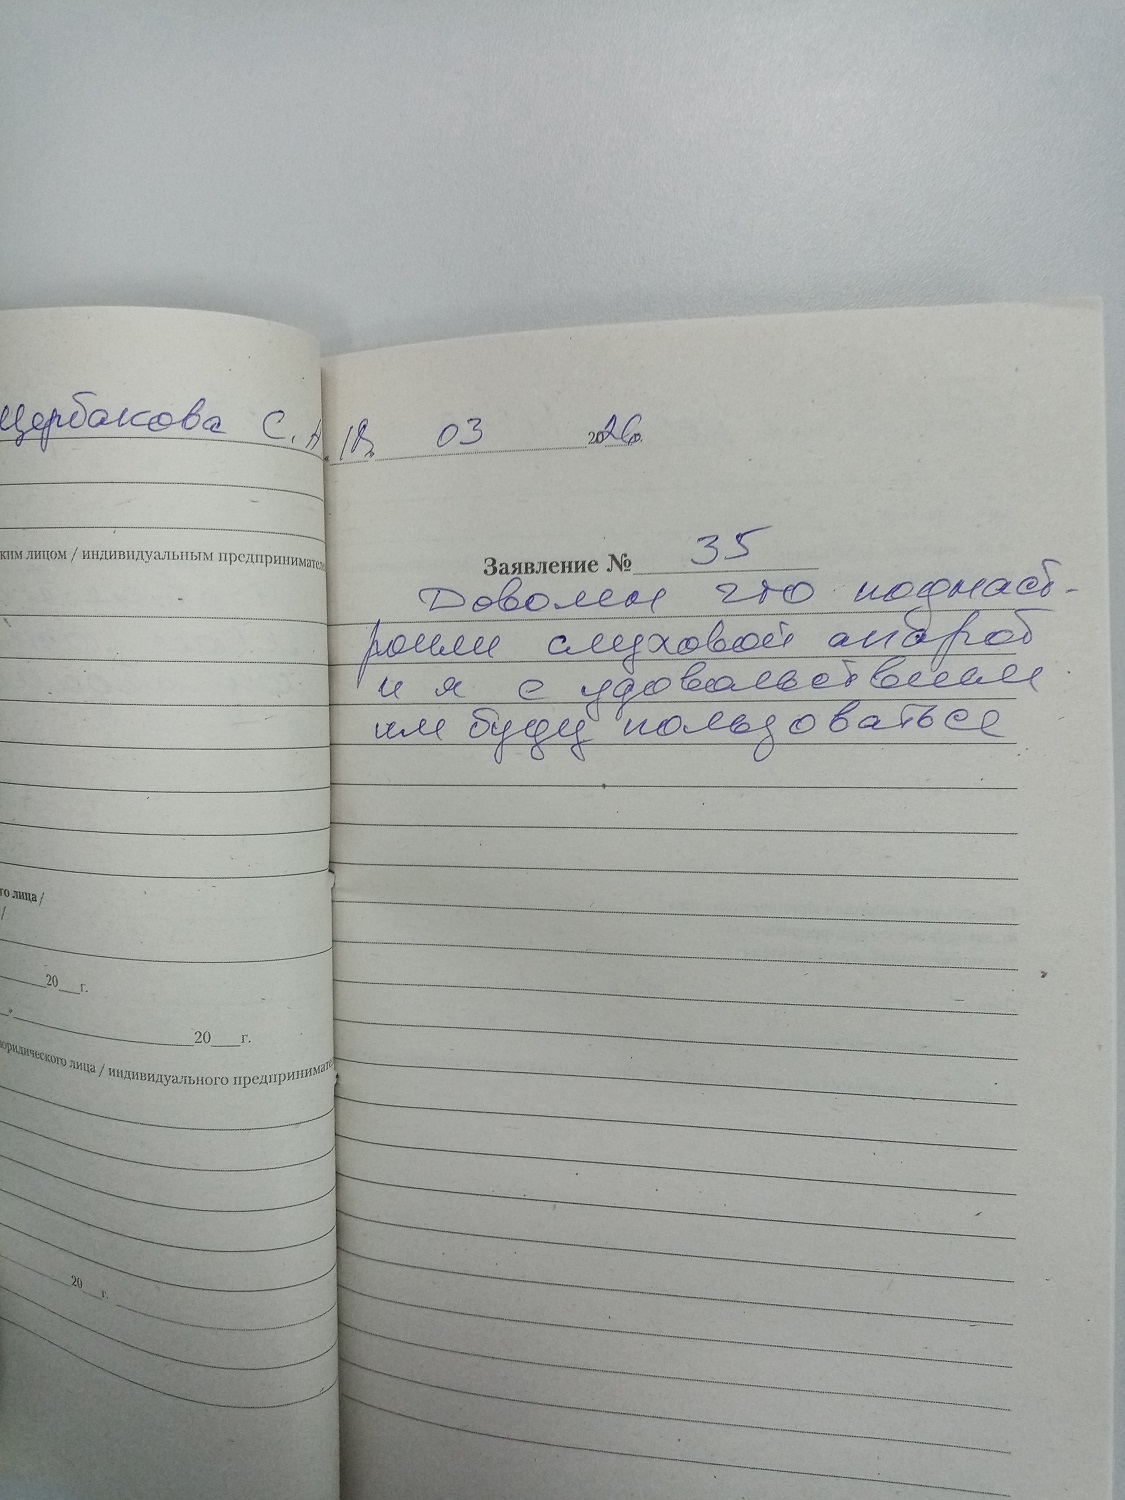 Щербакова С. А.
ким лицом / индивидуальным предпринимател
го лица /
/
20 г.
20 г.
юридического лица / индивидуального предпринимател
20 г.
03 2026г.
Заявление № 35
Доволен что поднаст-
роили слуховой апарат
и я с удовольствием
им буду пользоваться